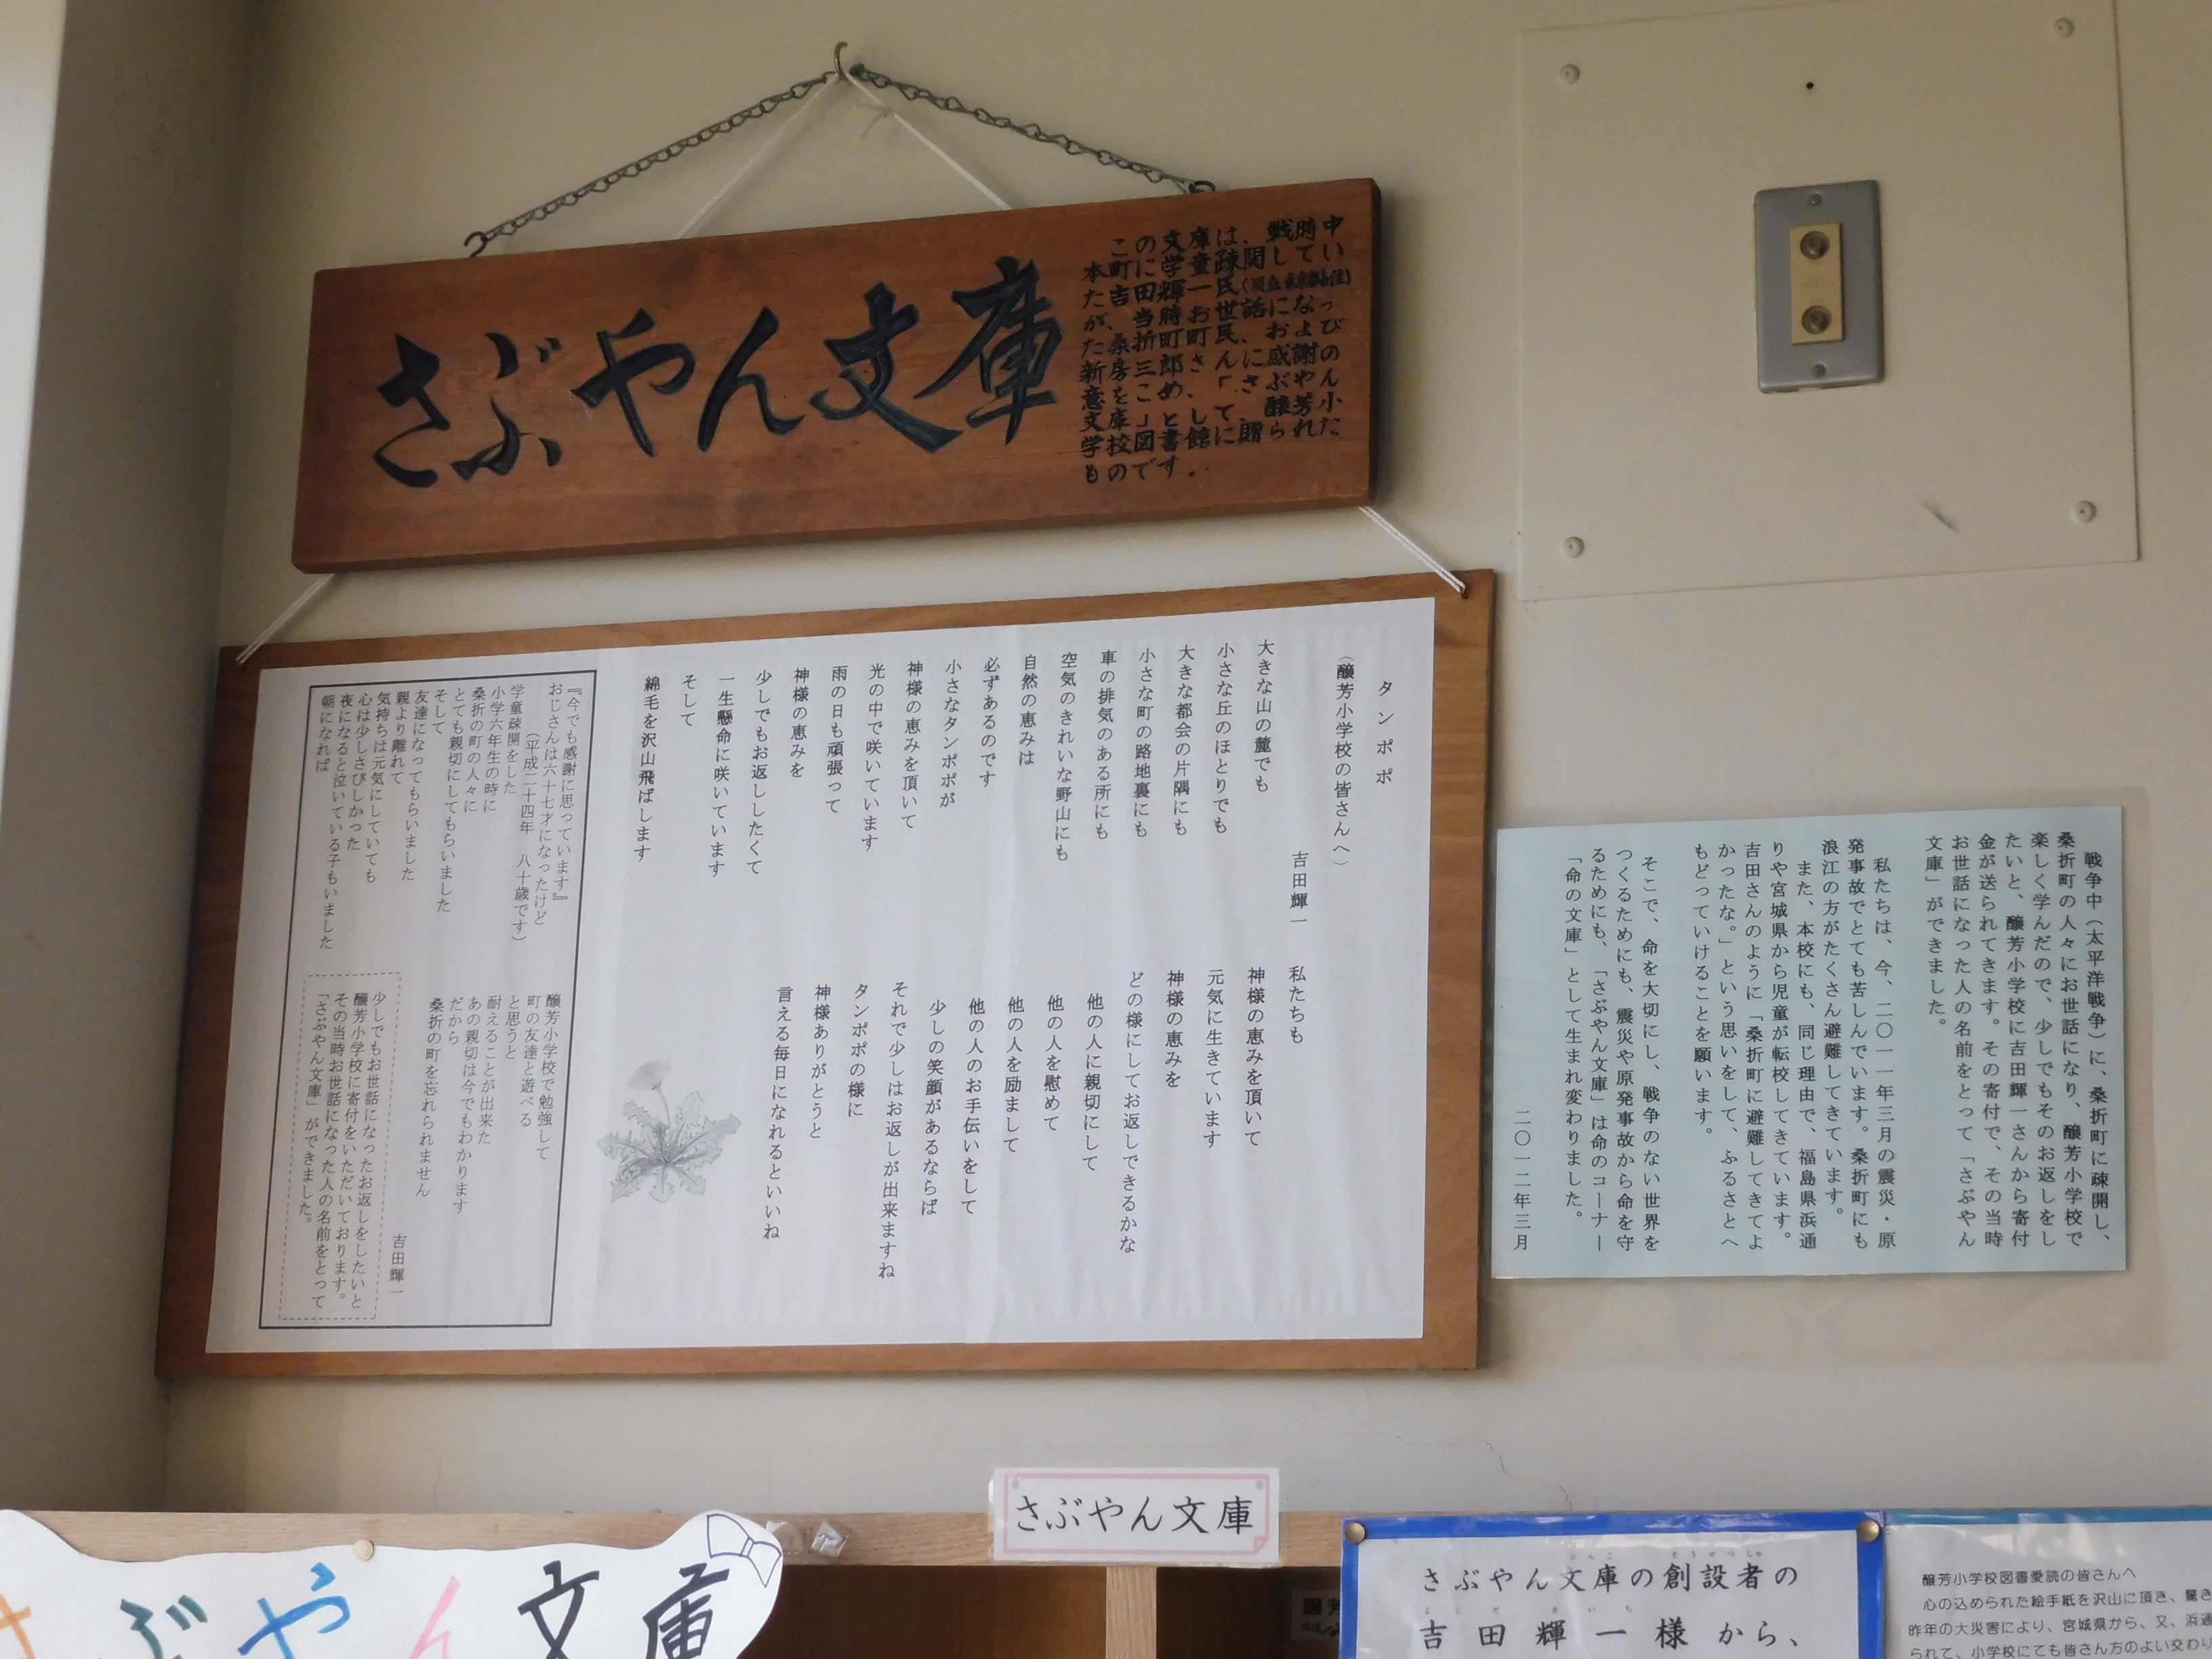 さぶやん文庫
この文庫は、戦時中
本町に学童疎開してい
た吉田輝一氏(現在東京都在住)
が、当時お世話になっ
た桑折町町民、および
新房三郎さんに感謝の
意をこめ、「さぶやん
文庫」として、醸芳小
学校図書館に贈られた
ものです。
タンポポ
(醸芳小学校の皆さんへ)
吉田輝一
大きな山の麓でも
小さな丘のほとりでも
大きな都会の片隅にも
小さな町の路地裏にも
車の排気のある所にも
空気のきれいな野山にも
自然の恵みは
必ずあるのです
小さなタンポポが
神様の恵みを頂いて
光の中で咲いています
雨の日も頑張って
神様の恵みを
少しでもお返ししたくて
一生懸命に咲いています
そして
綿毛を沢山飛ばします
私たちも
神様の恵みを頂いて
元気に生きています
神様の恵みを
どの様にしてお返しできるかな
他の人に親切にして
他の人を慰めて
他の人を励まして
他の人のお手伝いをして
少しの笑顔があるならば
それで少しはお返しが出来ますね
タンポポの様に
神様ありがとうと
言える毎日になれるといいね
『今でも感謝に思っています』
おじさんは六十七才になったけど
(平成二十四年 八十歳です)
学童疎開をした
小学六年生の時に
桑折の町の人々に
とても親切にしてもらいました
そして
友達になってもらいました
親より離れて
気持ちは元気にしていても
心は少しさびしかった
夜になると泣いている子もいました
朝になれば
醸芳小学校で勉強して
町の友達と遊べる
と思うと
耐えることが出来た
あの親切は今でもわかります
だから
桑折の町を忘れられません
吉田輝一
少しでもお世話になったお返しをしたいと
醸芳小学校に寄付をいただいております。
その当時お世話になった人の名前をとって
「さぶやん文庫」ができました。
戦争中(太平洋戦争)に、桑折町に疎開し、
桑折町の人々にお世話になり、醸芳小学校で
楽しく学んだので、少しでもそのお返しをし
たいと、醸芳小学校に吉田輝一さんから寄付
金が送られてきます。その寄付で、その当時
お世話になった人の名前をとって「さぶやん
文庫」ができました。
私たちは、今、二〇一一年三月の震災・原
発事故でとても苦しんでいます。桑折町にも
浪江の方がたくさん避難してきています。
また、本校にも、同じ理由で、福島県浜通
りや宮城県から児童が転校してきています。
吉田さんのように「桑折町に避難してきてよ
かったな。」という思いをして、ふるさとへ
もどっていけることを願います。
そこで、命を大切にし、戦争のない世界を
つくるためにも、震災や原発事故から命を守
るためにも、「さぶやん文庫」は命のコーナー
「命の文庫」として生まれ変わりました。
二〇一二年三月
さぶやん文庫
さぶやん文庫
さぶやん文庫の創設者の
吉田輝一様から、
醸芳小学校図書愛読の皆さんへ
心の込められた絵手紙を沢山に頂き、驚き
昨年の大災害により、宮城県から、又、浜通
られて、小学校にても皆さん方のよい交わり